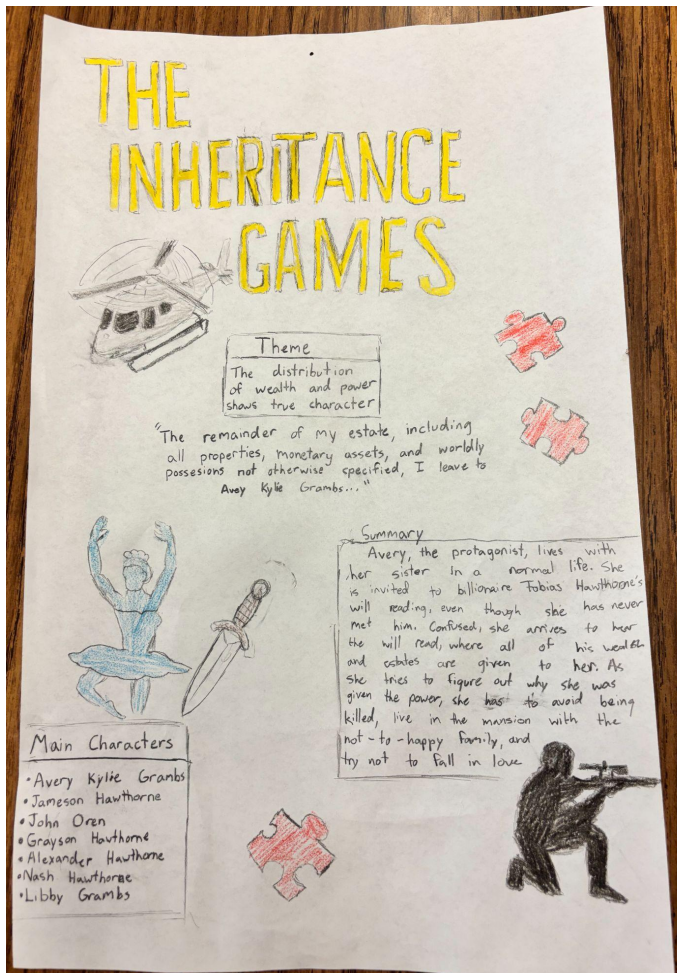 THE
INHERITANCE
GAMES
Theme
The distribution
of wealth and power
shows true character
"The remainder of my estate, including
all properties, monetary assets, and worldly
possesions not otherwise specified, I leave to
Avey Kylie Grambs..."
Summary
Avery, the protagonist, lives with
her sister in a normal life. She
is invited to billionaire Tobias Hawthorne's
will reading, even though she has never
met him. Confused, she arrives to hear
the will read, where all of his wealth
and estates are given to her. As
she tries to figure out why she was
given the power, she has to avoid being
killed, live in the mansion with the
not-to-happy family, and
try not to fall in love
Main Characters
•Avery Kylie Grambs
•Jameson Hawthorne
•John Oren
•Grayson Hawthorne
•Alexander Hawthorne
•Nash Hawthorne
•Libby Grambs